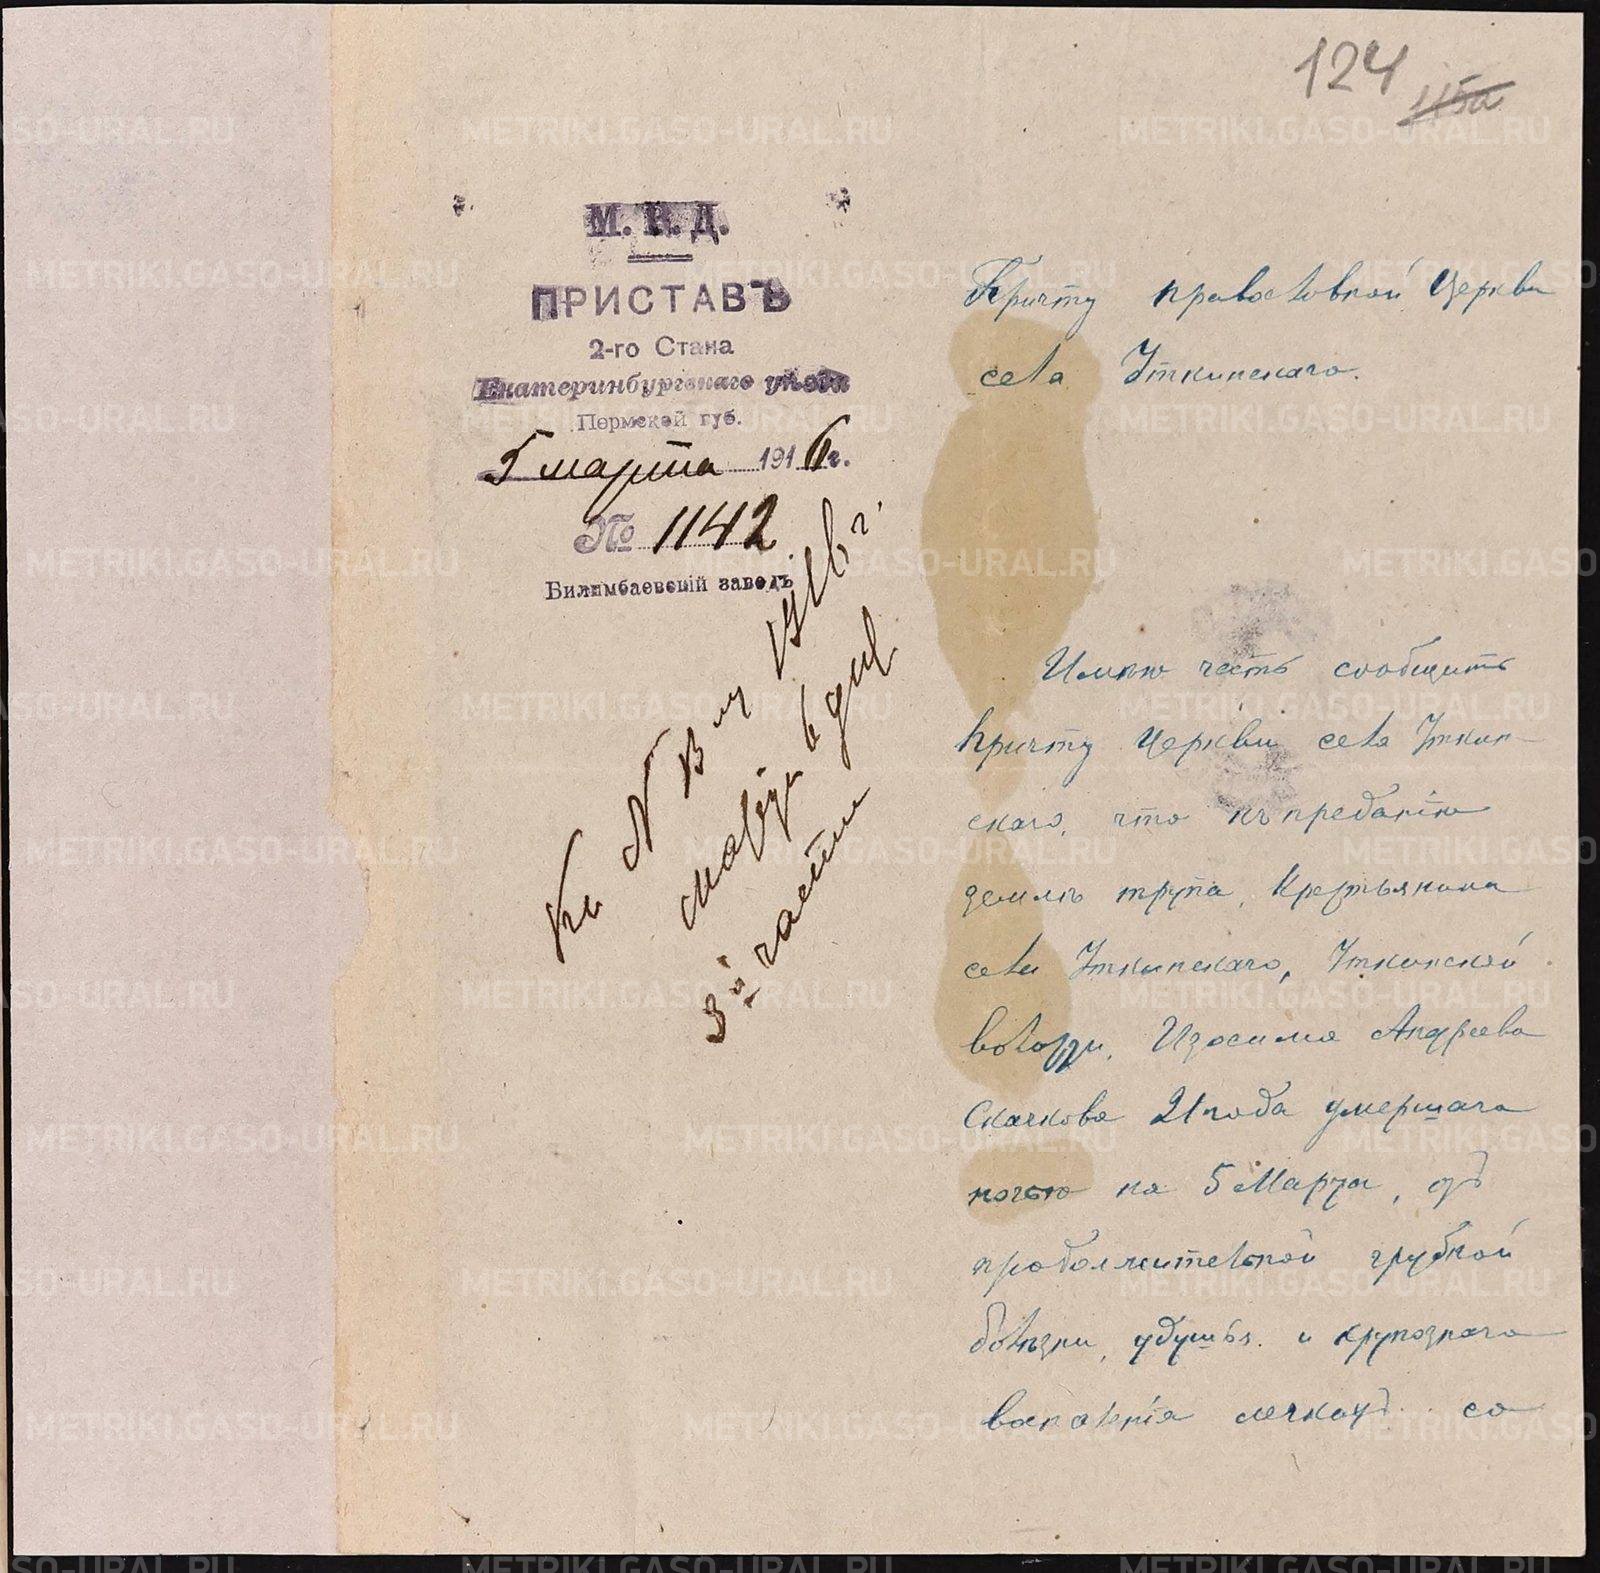 124
115а
М. В. Д.
ПРИСТАВЪ
2-го Стана
Екатеринбургскаго уѣзда
Пермской губ.
5 марта 1916 г.
№ 1142
Билимбаевскій заводъ
Къ №
1916 г.
3й части
Причту православной Церкви
села Уткинскаго.
Имѣю честь сообщить
Причту Церкви села Уткин-
скаго, что къ преданію
землѣ трупа, Крестьянина
села Уткинскаго, Уткинской
волости, Изосима Андреева
Скачкова 21 года умершаго
ночью на 5 Марта, отъ
продолжительной грудной
болѣзни, удушья и крупознаго
воспаленія легкихъ со
METRIKI.GASO-URAL.RU